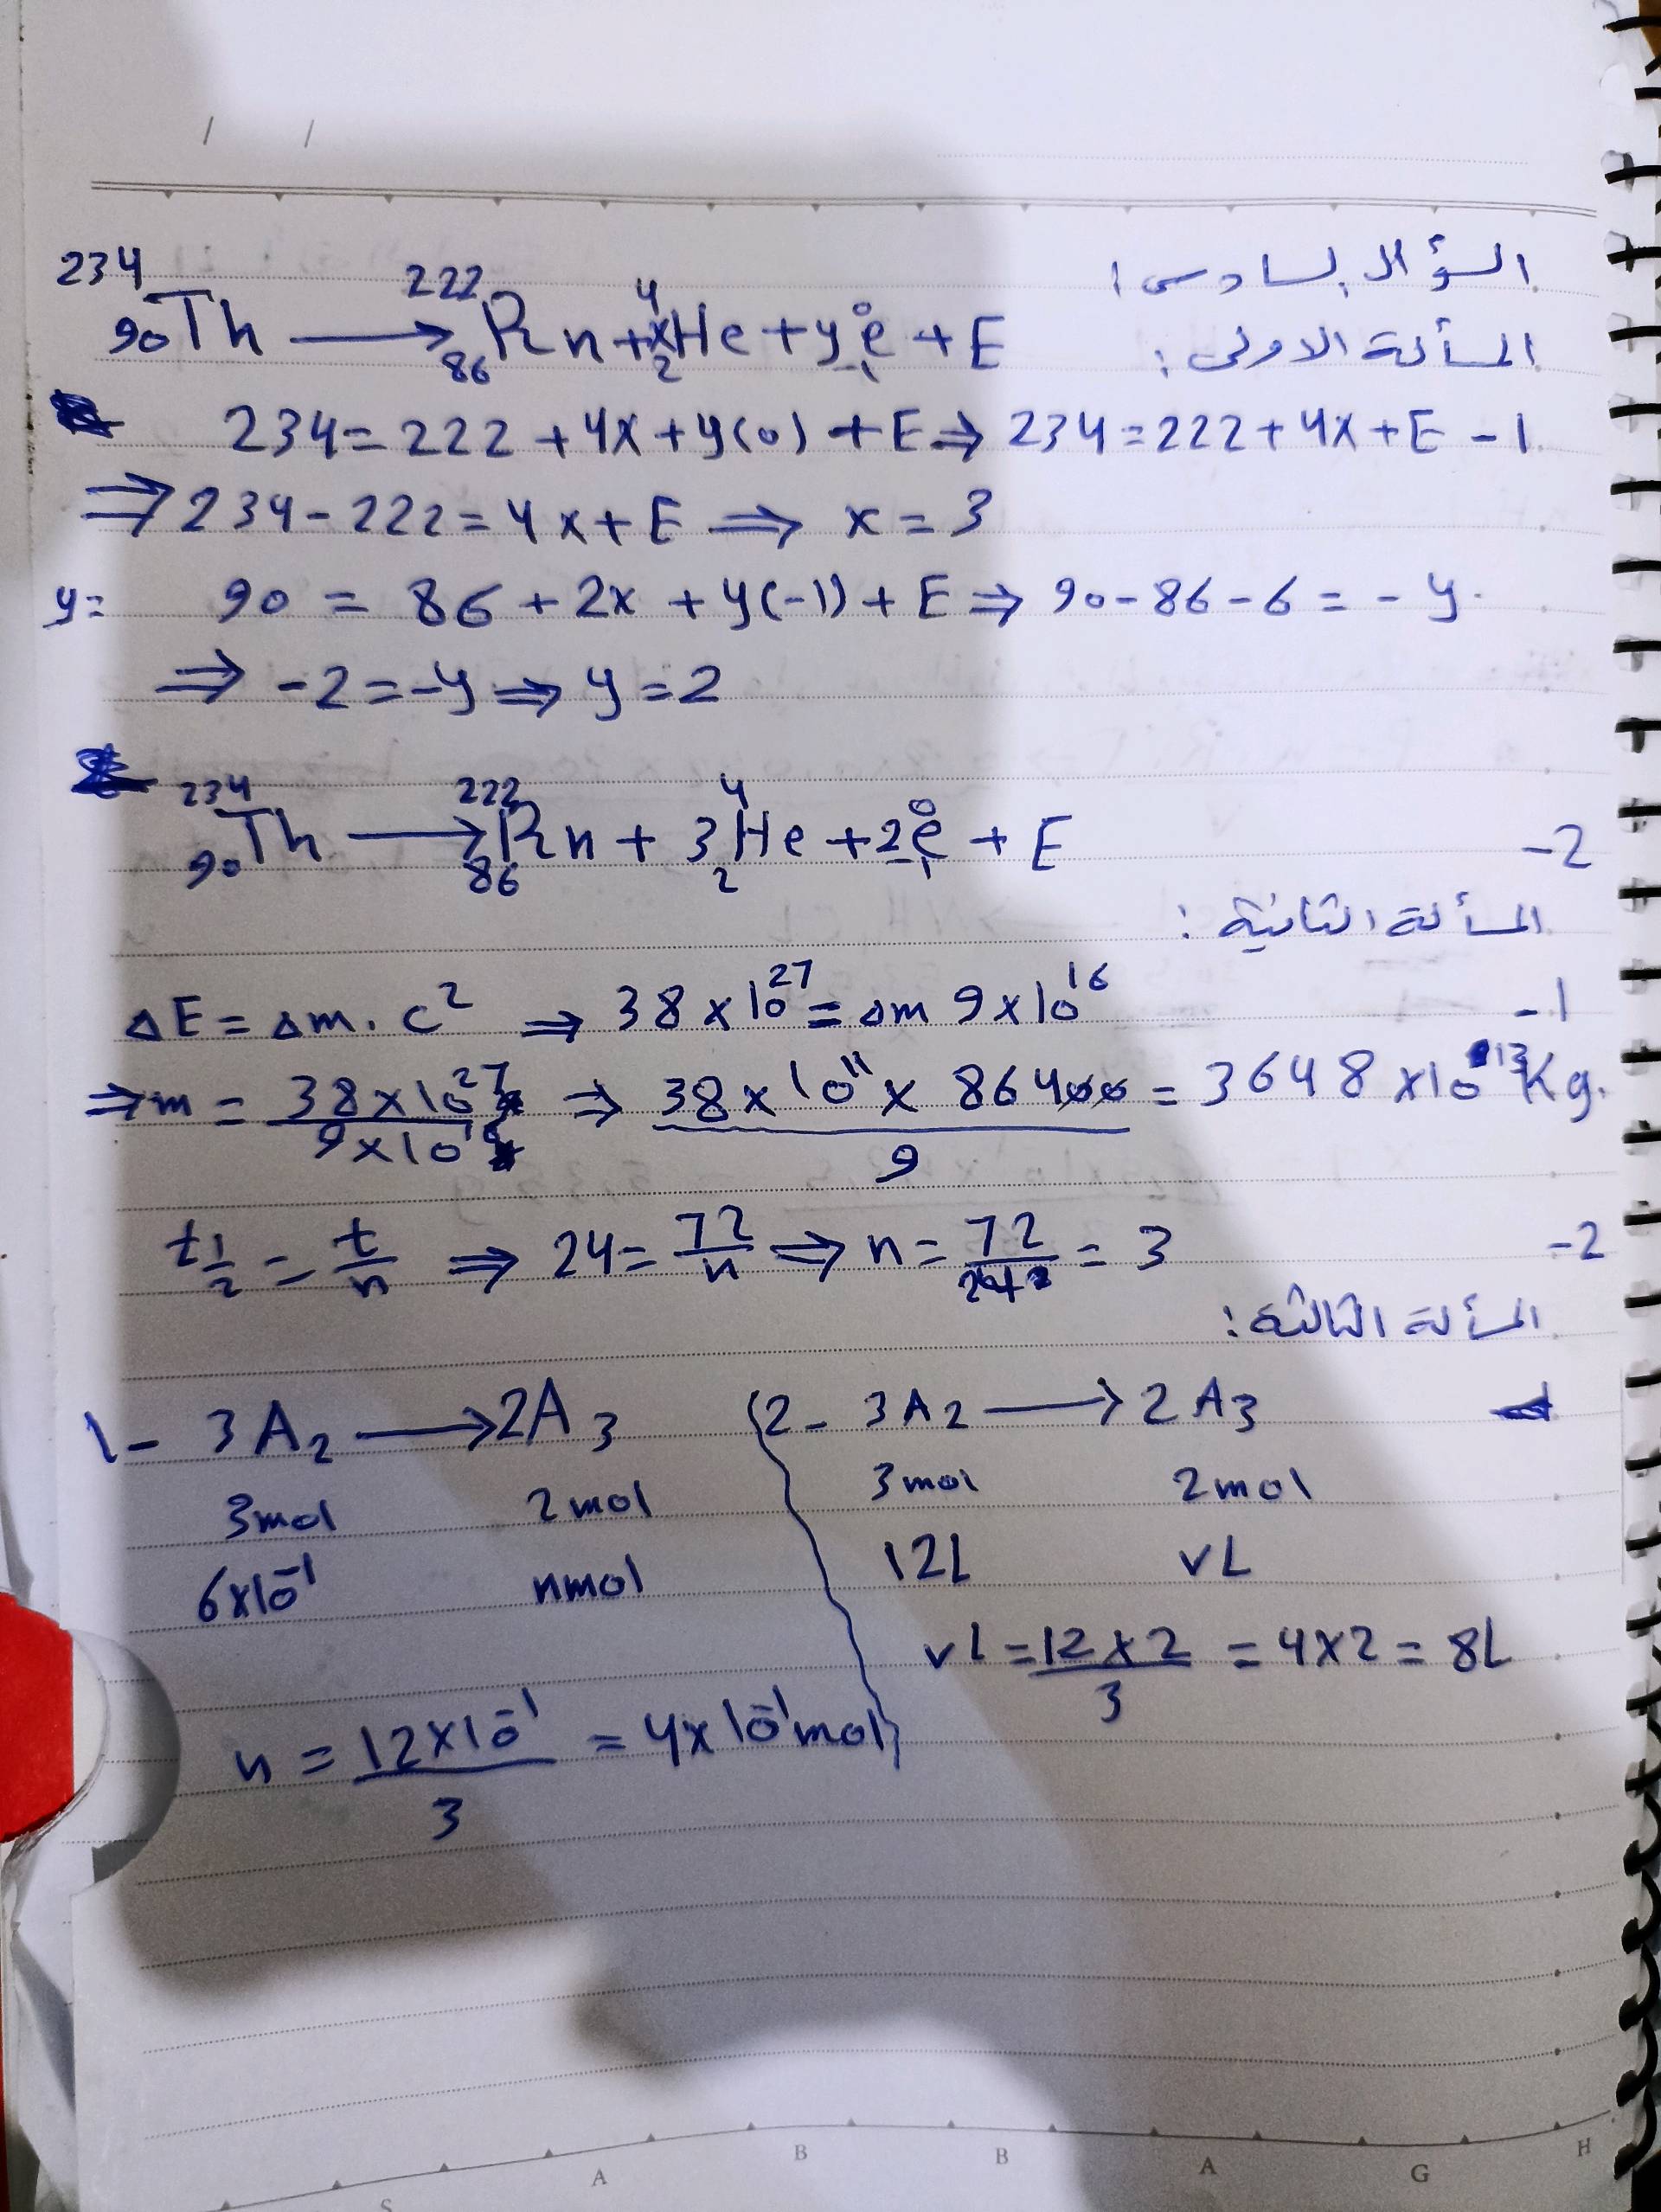 / /
السؤال السادس:
المسألة الأولى:
²³⁴₉₀Th → ²²²₈₆Rn + x⁴₂He + y⁰₋₁e + E
1- 234 = 222 + 4x + y(0) + E ⇒ 234 = 222 + 4x + E
⇒ 234 - 222 = 4x + E ⇒ x = 3
y= 90 = 86 + 2x + y(-1) + E ⇒ 90 - 86 - 6 = - y.
⇒ -2 = -y ⇒ y = 2
2- ²³⁴₉₀Th → ²²²₈₆Rn + 3⁴₂He + 2⁰₋₁e + E
المسألة الثانية:
1- ΔE = Δm . c² ⇒ 38 × 10²⁷ = Δm 9 × 10¹⁶
⇒ m = 38 × 10²⁷ / 9 × 10¹⁶ ⇒ 38 × 10¹¹ × 86400 / 9 = 3648 × 10¹³ Kg.
2- t½ = t/n ⇒ 24 = 72/n ⇒ n = 72/24 = 3
المسألة الثالثة:
1- 3A₂ → 2A₃
3mol 2mol
6×10⁻¹ nmol
n = 12×10⁻¹ / 3 = 4×10⁻¹ mol
2- 3A₂ → 2A₃
3mol 2mol
12L vL
vL = 12×2 / 3 = 4×2 = 8L
S A B B A G H